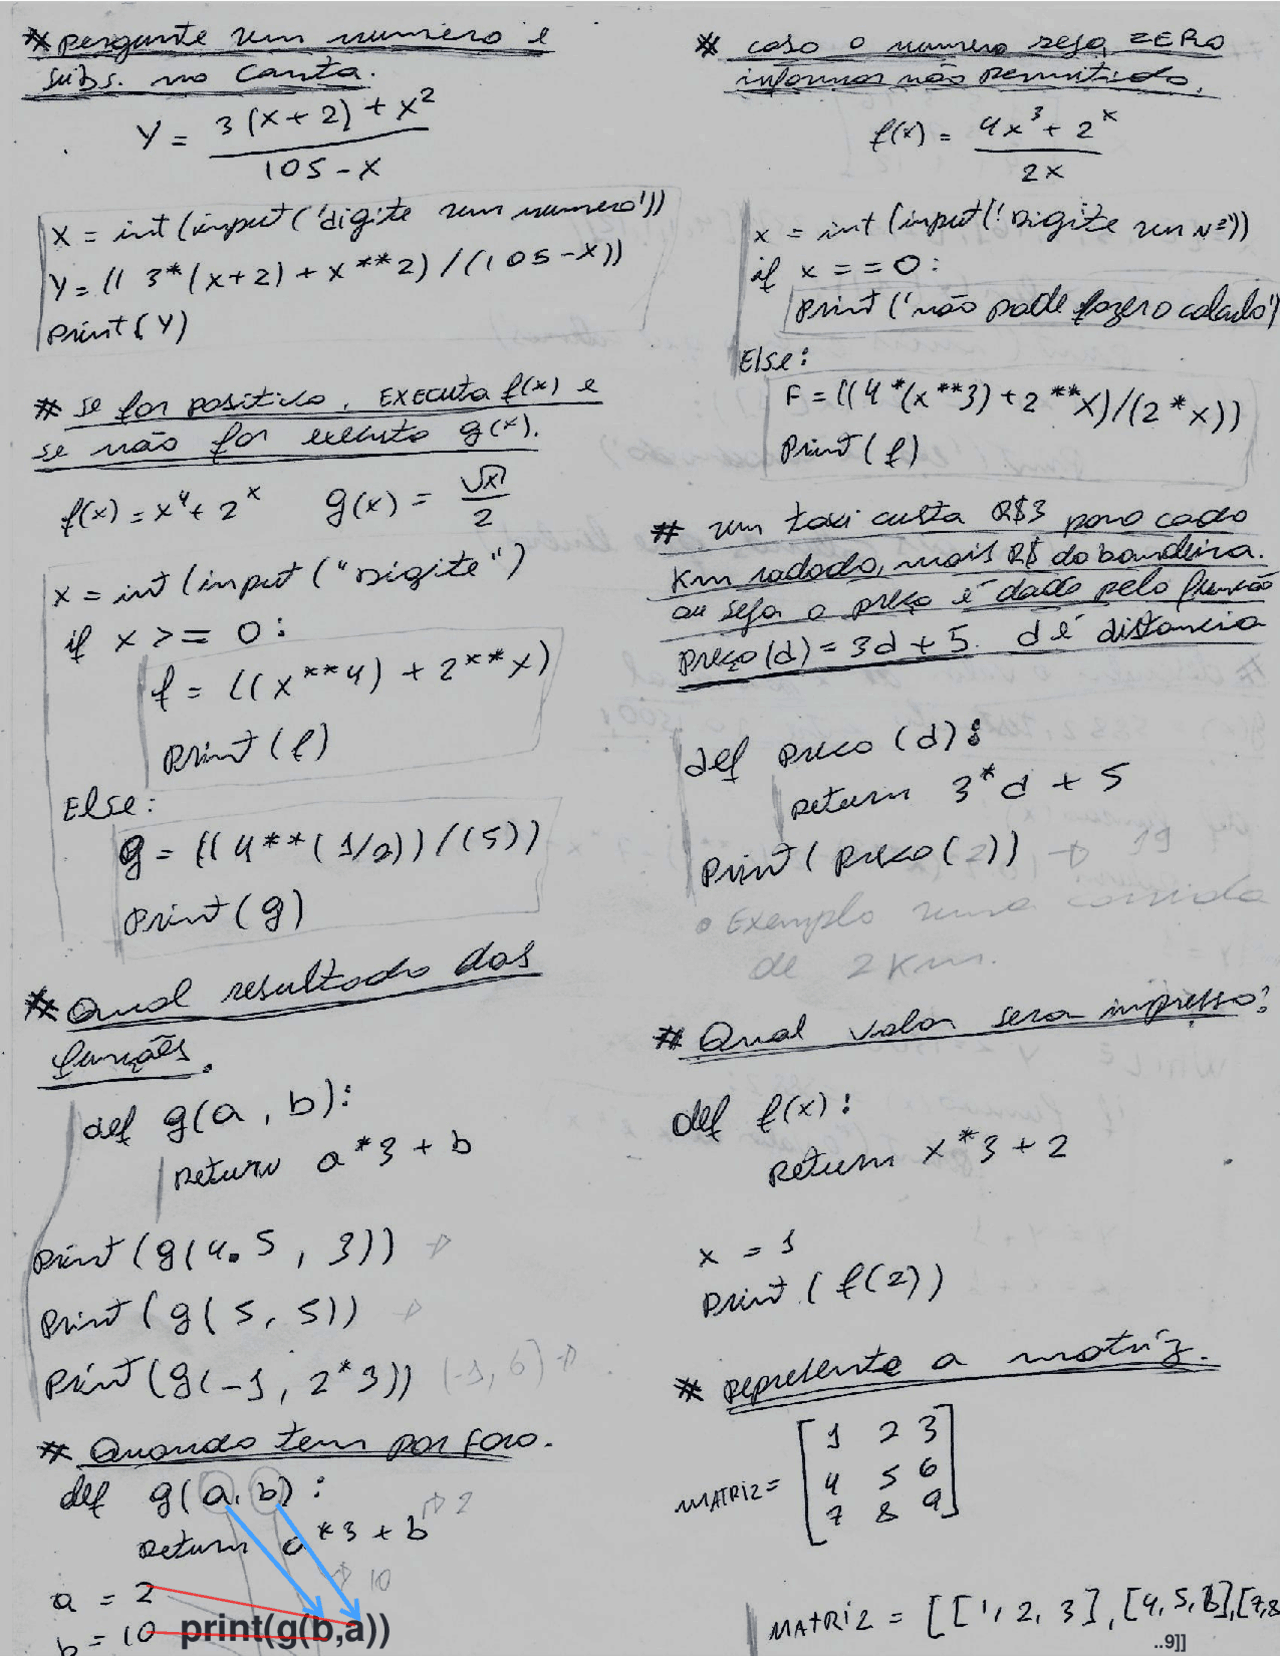 * pergunte um numero e
subs. na Conta.
Y = 3(x+2)+x²
105-x
x = int(input('digite um numero'))
Y = (( 3*(x+2) + x**2) / (105-x))
print(Y)
# se for positivo, EXECUTA f(x) e
se não for executa g(x).
f(x) = x⁴ + 2ˣ g(x) = √x
2
x = int(input("Digite")
if x >= 0:
f = ((x**4) + 2**x)
Print(f)
Else:
g = ((4**(1/2))/(5))
Print(g)
# Qual resultado das
funções.
def g(a, b):
return a*3 + b
print(g(4.5, 3))
Print(g(5, 5))
Print(g(-1, 2*3)) (-1, 6)
# Quando tem por fora.
def g(a, b):
return a*3 + b 2
10
a = 2
b = 10 print(g(b,a))
* caso o numero seja ZERO
informar não permitido.
f(x) = 4x³ + 2ˣ
2x
x = int(input('Digite um Nº'))
if x == 0:
Print('não pode fazer o calculo')
Else:
F = ((4*(x**3)+2**x)/(2*x))
Print(f)
# um taxi custa R$3 para cada
Km rodado, mais R$ da bandeira.
ou seja o preço é dado pela função
preço(d) = 3d + 5. d é distancia
def preco(d):
return 3*d + 5
Print(preco(2))
• Exemplo uma corrida
de 2 Km.
# Qual valor sera impresso?
def f(x):
Return x*3 + 2
x = 1
Print(f(2))
* represente a matriz.
1 2 3
MATRIZ = 4 5 6
7 8 9
MATRIZ = [[1, 2, 3], [4, 5, 6], [7, 8
..9]]